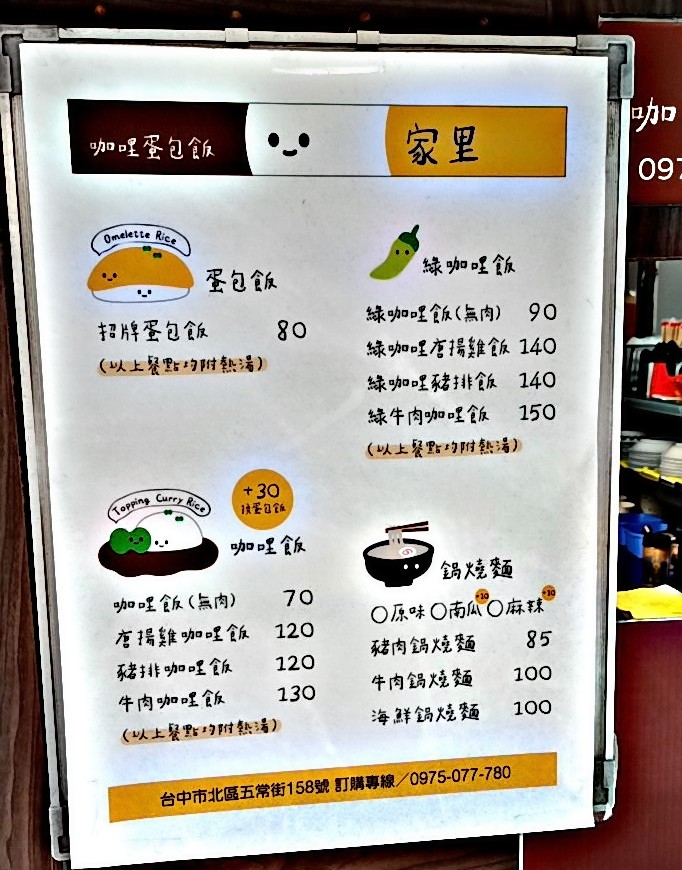 咖哩蛋包飯
家里
Omelette Rice
蛋包飯
招牌蛋包飯 80
(以上餐點均附熱湯)
綠咖哩飯
綠咖哩飯(無肉) 90
綠咖哩唐揚雞飯 140
綠咖哩豬排飯 140
綠牛肉咖哩飯 150
(以上餐點均附熱湯)
Topping Curry Rice
+30
換蛋包飯
咖哩飯
咖哩飯(無肉) 70
唐揚雞咖哩飯 120
豬排咖哩飯 120
牛肉咖哩飯 130
(以上餐點均附熱湯)
鍋燒麵
○原味 ○南瓜+10 ○麻辣+10
豬肉鍋燒麵 85
牛肉鍋燒麵 100
海鮮鍋燒麵 100
台中市北區五常街158號 訂購專線／0975-077-780
咖
097